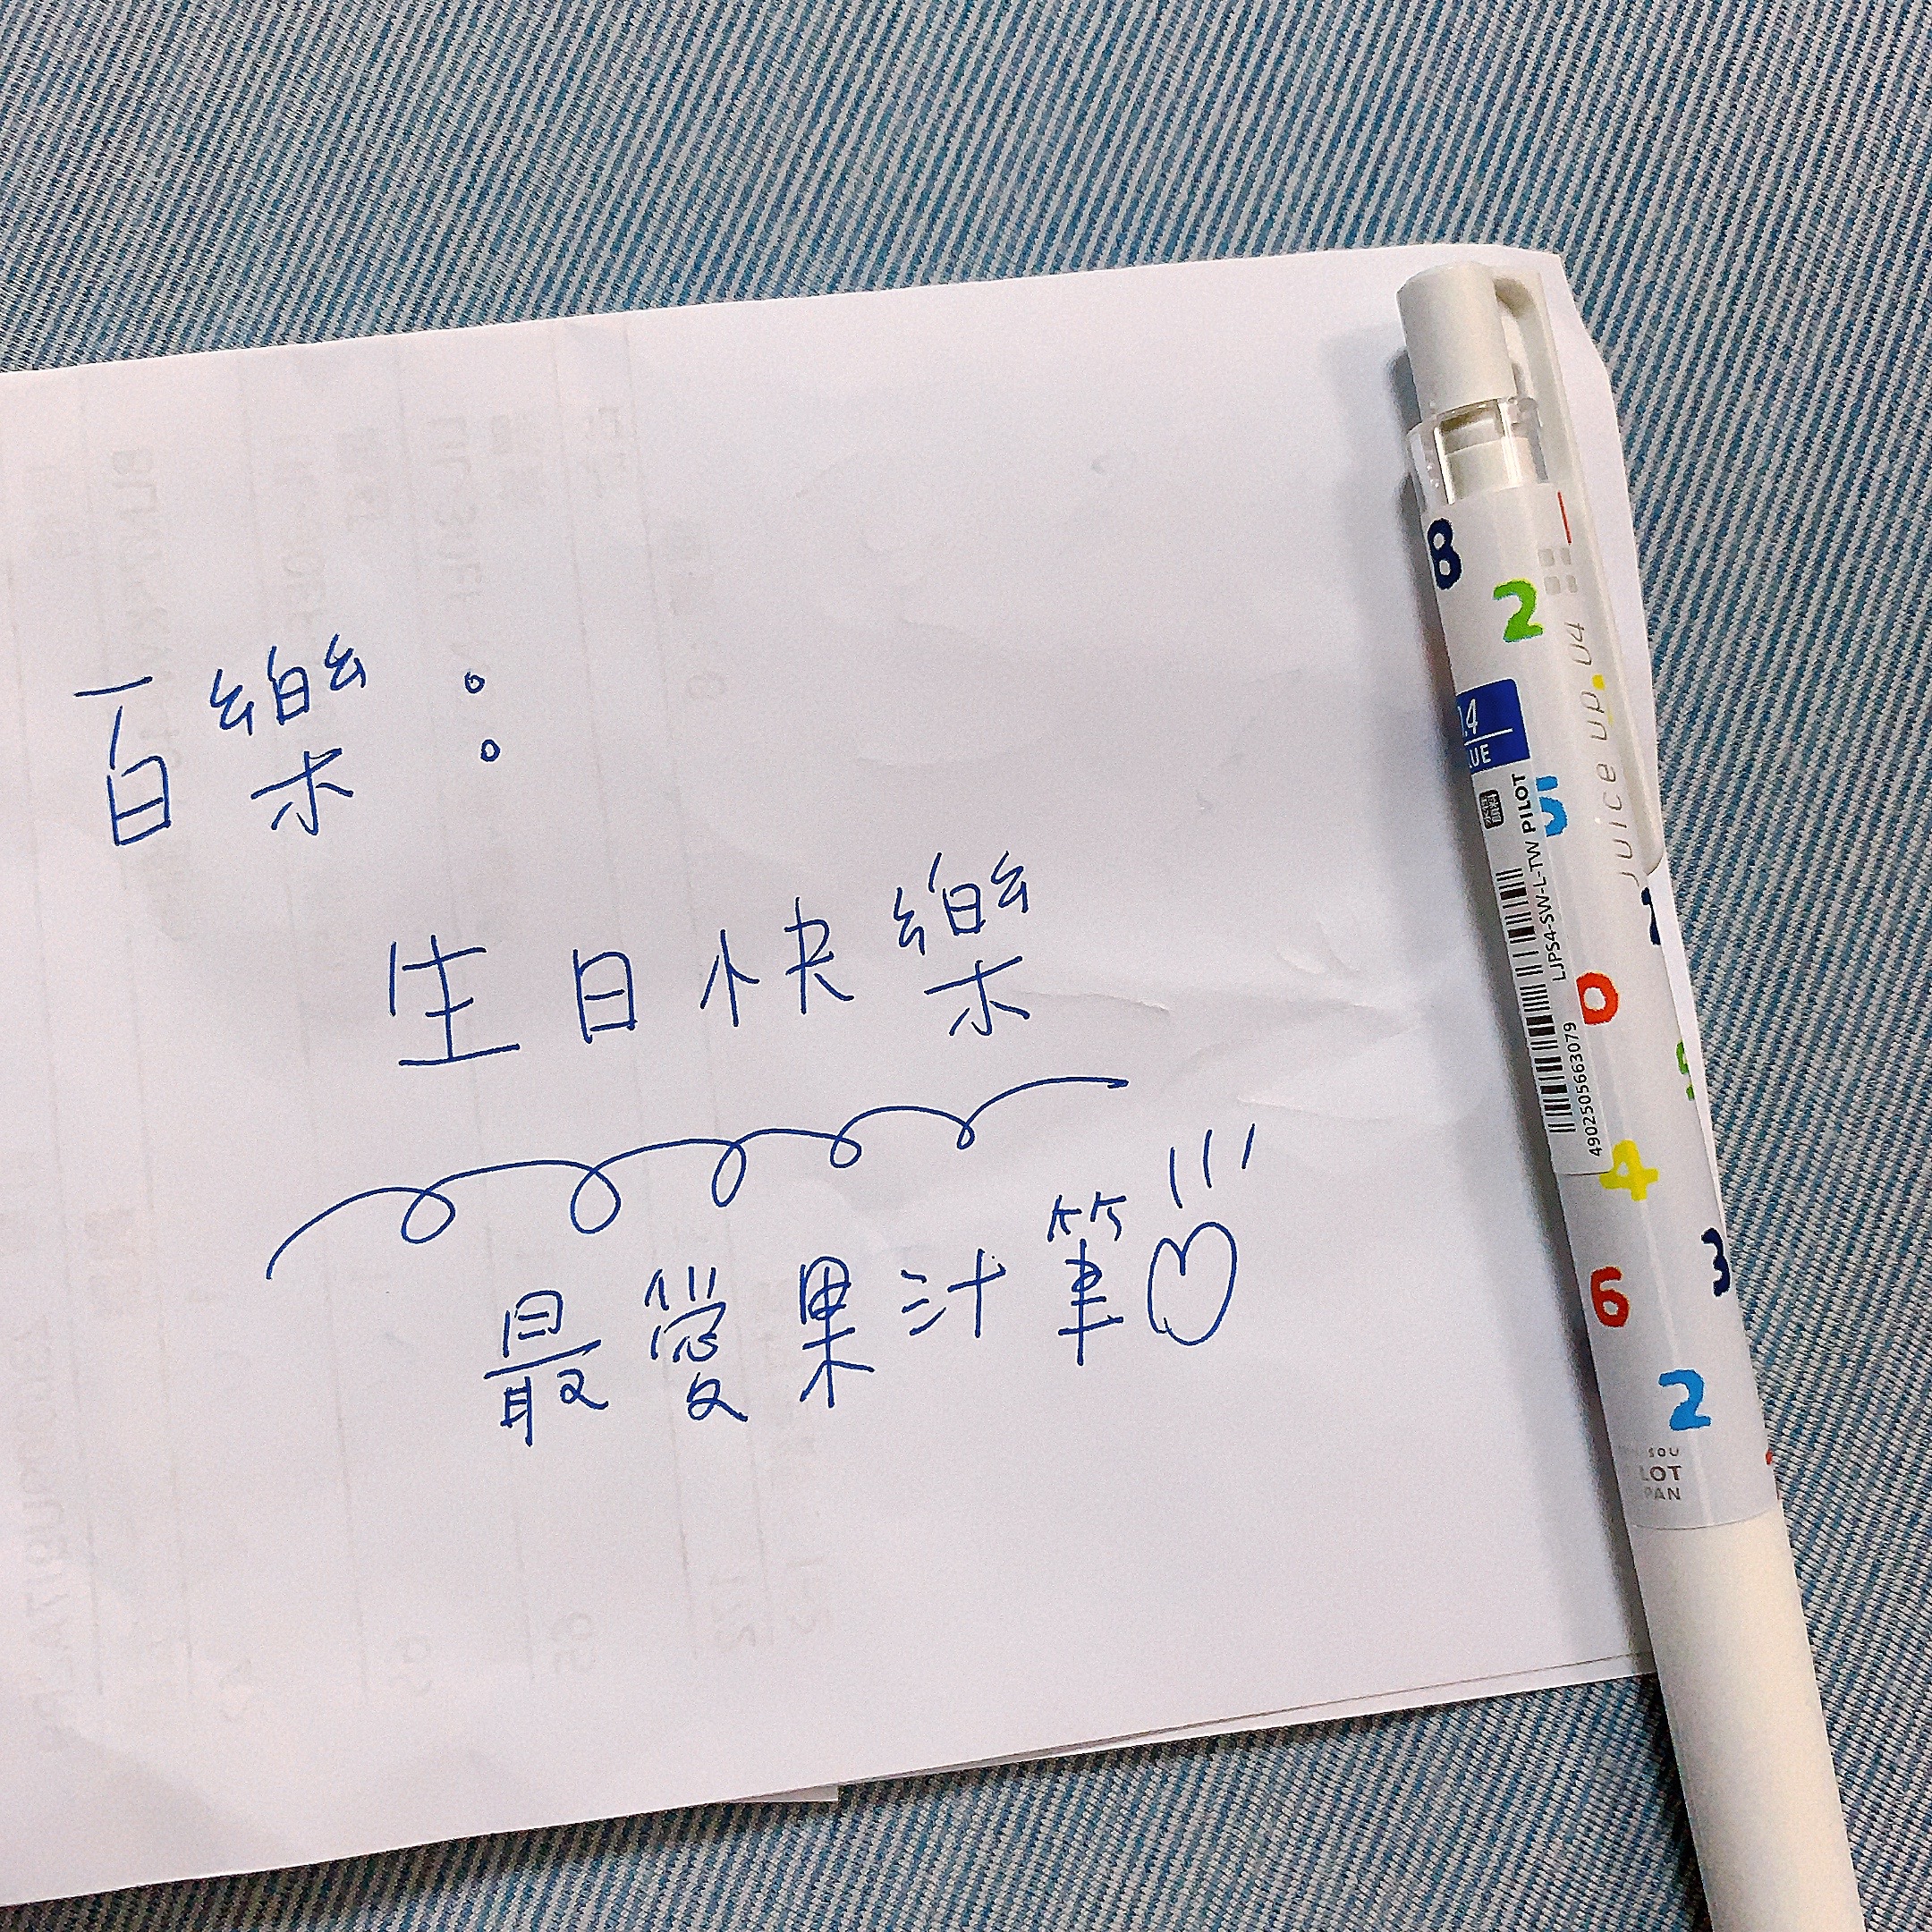 百樂：
生日快樂
最愛果汁筆♡
8
2
Juice up. 04
.4
LUE
PILOT
LJPS4-SW-L-TW
4902505663079
5
0
4
3
6
2
SOU
LOT
PAN